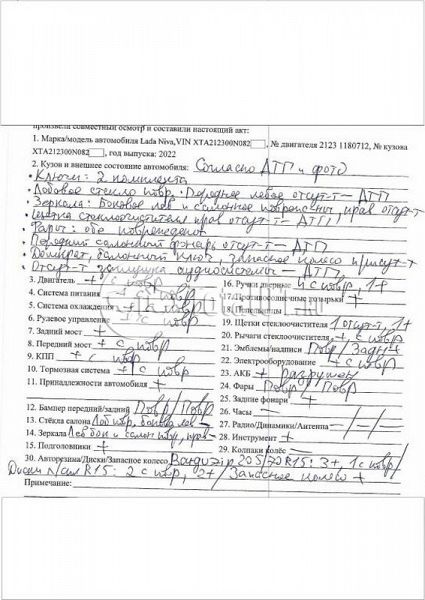 произвели совместный осмотр и составили настоящий акт:
1. Марка/модель автомобиля Lada Niva,VIN XTA212300N082, № двигателя 2123 1180712, № кузова
XTA212300N082, год выпуска: 2022
2. Кузов и внешнее состояние автомобиля: Согласно ДТП и фото
• Ключи: 2 комплекта
• Лобовое стекло повр. Переднее левое отсут-т – ДТП
• Зеркала: Боковое лев и салонное повреждены, прав отсут-т
• щетка стеклоочистителя прав отсут-т – ДТП
• Фары: обе повреждены
• Передний салонный фонарь отсут-т – ДТП
• Домкрат, балонный ключ, запасное колесо присут-т
• Отсут-т заглушка аудиосистемы – ДТП
3. Двигатель + с повр
4. Система питания + с повр
5. Система охлаждения + с повр
6. Рулевое управление + с повр
7. Задний мост +
8. Передний мост + с повр
9. КПП + с повр
10. Тормозная система + с повр
11. Принадлежности автомобиля +
12. Бампер передний/задний Повр/Повр
13. Стёкла салона Лоб повр, боков лев –
14. Зеркала Лев бок и салон повр, прав –
15. Подголовники +
16. Ручки дверные 4 с повр, 1+
17. Противосолнечные козырьки +
18. Пепельницы
19. Щетки стеклоочистителя 1 отсут-т, 1+
20. Рычаги стеклоочистителя + с повр
21. Эмблемы/надписи Повр/Задн +
22. Электрооборудование + с повр
23. АКБ + разрушен
24. Фары Повр/Повр
25. Задние фонари +
26. Часы –
27. Радио/Динамики/Антенна –/–/–
28. Инструмент +
29. Колпаки колёс –
30. Авторезина/Диски/Запасное колесо 205/70R15: 3+, 1 с повр/
Диски R15: 2 с повр, 2+/Запасное колесо +
Примечание: